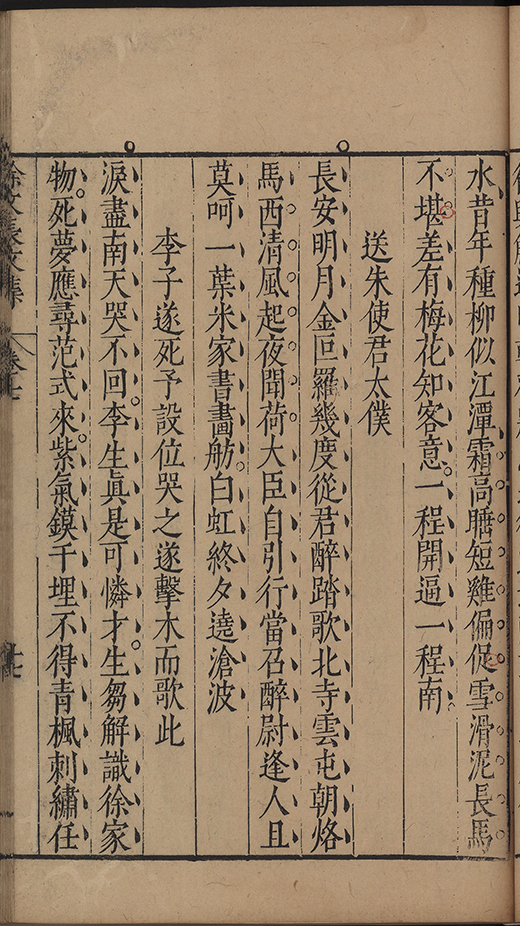 水昔年種柳似江潭霜高賸短雞偏促雪滑泥長馬
不堪差有梅花知客意一程開逼一程南
送朱使君太僕
長安明月金叵羅幾度從君醉踏歌北寺雲屯朝烙
馬西清風起夜聞荷大臣自引行當召醉尉逢人且
莫呵一葉米家書畵舫白虹終夕遶滄波
李子遂死予設位哭之遂擊木而歌此
淚盡南天哭不回李生眞是可憐才生芻解識徐家
物死夢應尋范式來紫氣鏌干埋不得青楓刺繡任
徐文長文集
卷十七